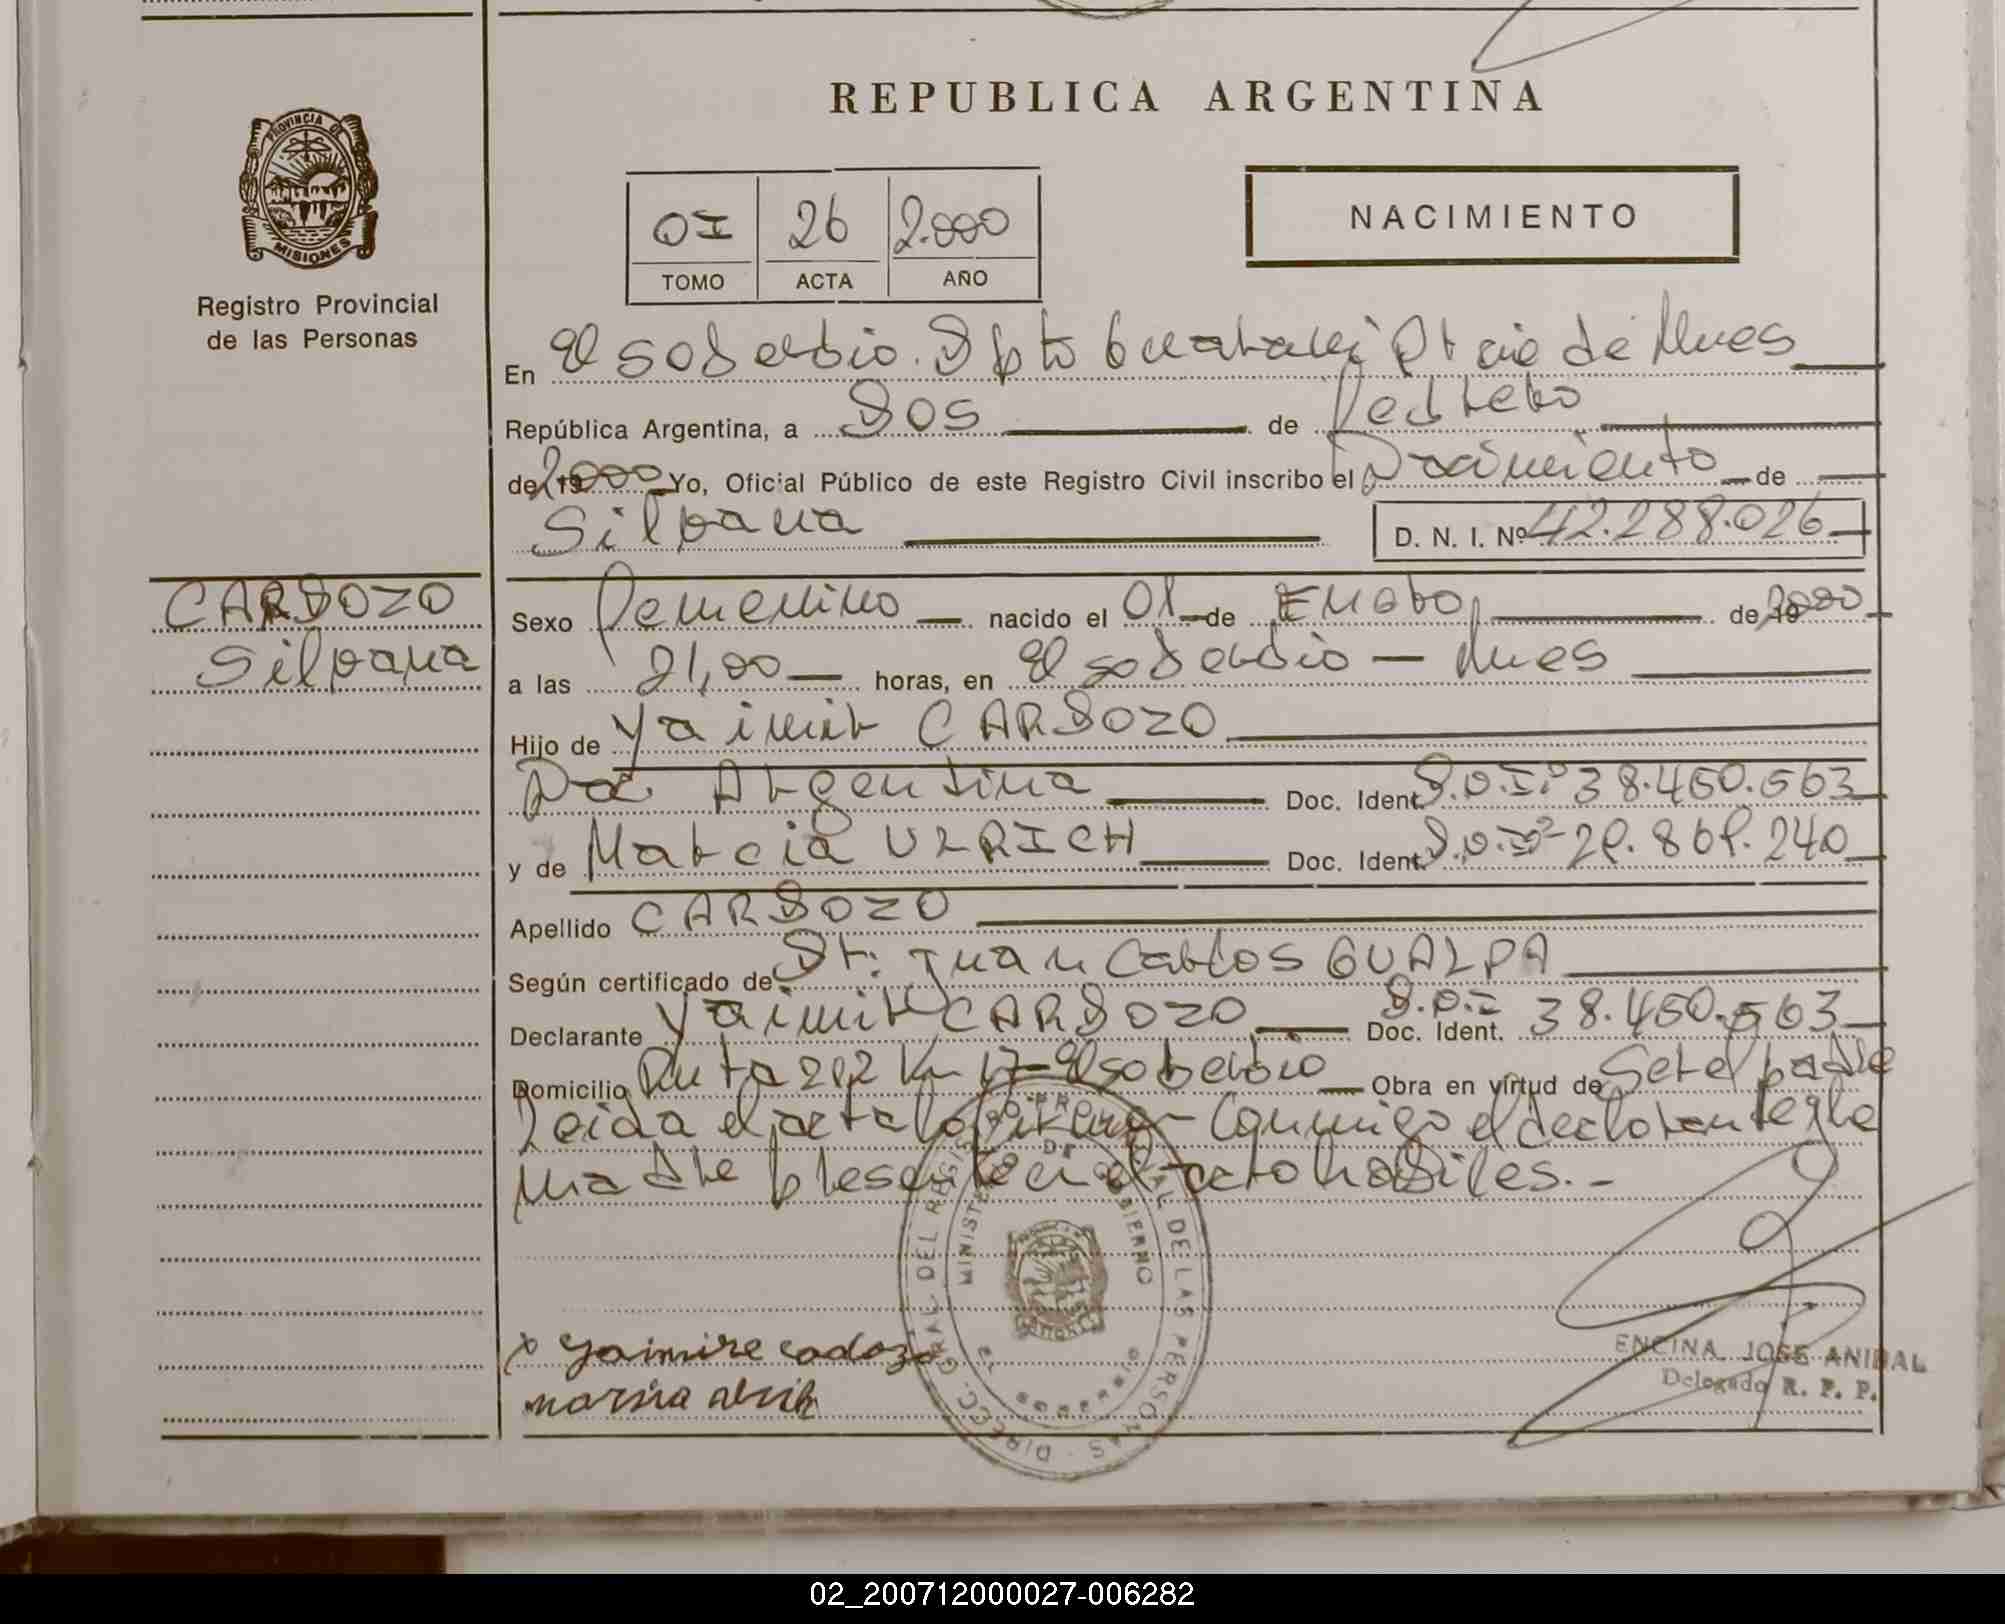 REPUBLICA ARGENTINA
PROVINCIA DE
MISIONES
Registro Provincial
de las Personas
01 26 2.000
TOMO ACTA AÑO
NACIMIENTO
En El soberbio. Dpto Guarani Ptcia de Mnes
República Argentina, a Dos de Febrero
de 2000 Yo, Oficial Público de este Registro Civil inscribo el Nacimiento de
Silvana D. N. I. Nº 42.288.026
CARDOZO
Silvana
Sexo Femenino nacido el 01 de Enero de 2000
a las 21,00 horas, en El soberbio - Mnes
Hijo de Yaimir CARDOZO
Nac. Argentina Doc. Ident. D.N.I. 38.450.563
y de Marcia ULRICH Doc. Ident. D.N.I.
Apellido CARDOZO
Según certificado de Dr. Juan Carlos GUALPA
Declarante Yaimir CARDOZO Doc. Ident. D.N.I 38.450.563
Domicilio Ruta 212 Km 17 - El soberbio Obra en virtud de Ser el padre
Leida el acta la firma conmigo el declarante y la
madre presente en el acto habiles. -
DIRECC. GRAL. DEL REGIS DE LAS PERSONAS
x yaimire cadozo
ENCINA JOSE ANIBAL
Delegado R. P. P.
02_200712000027-006282